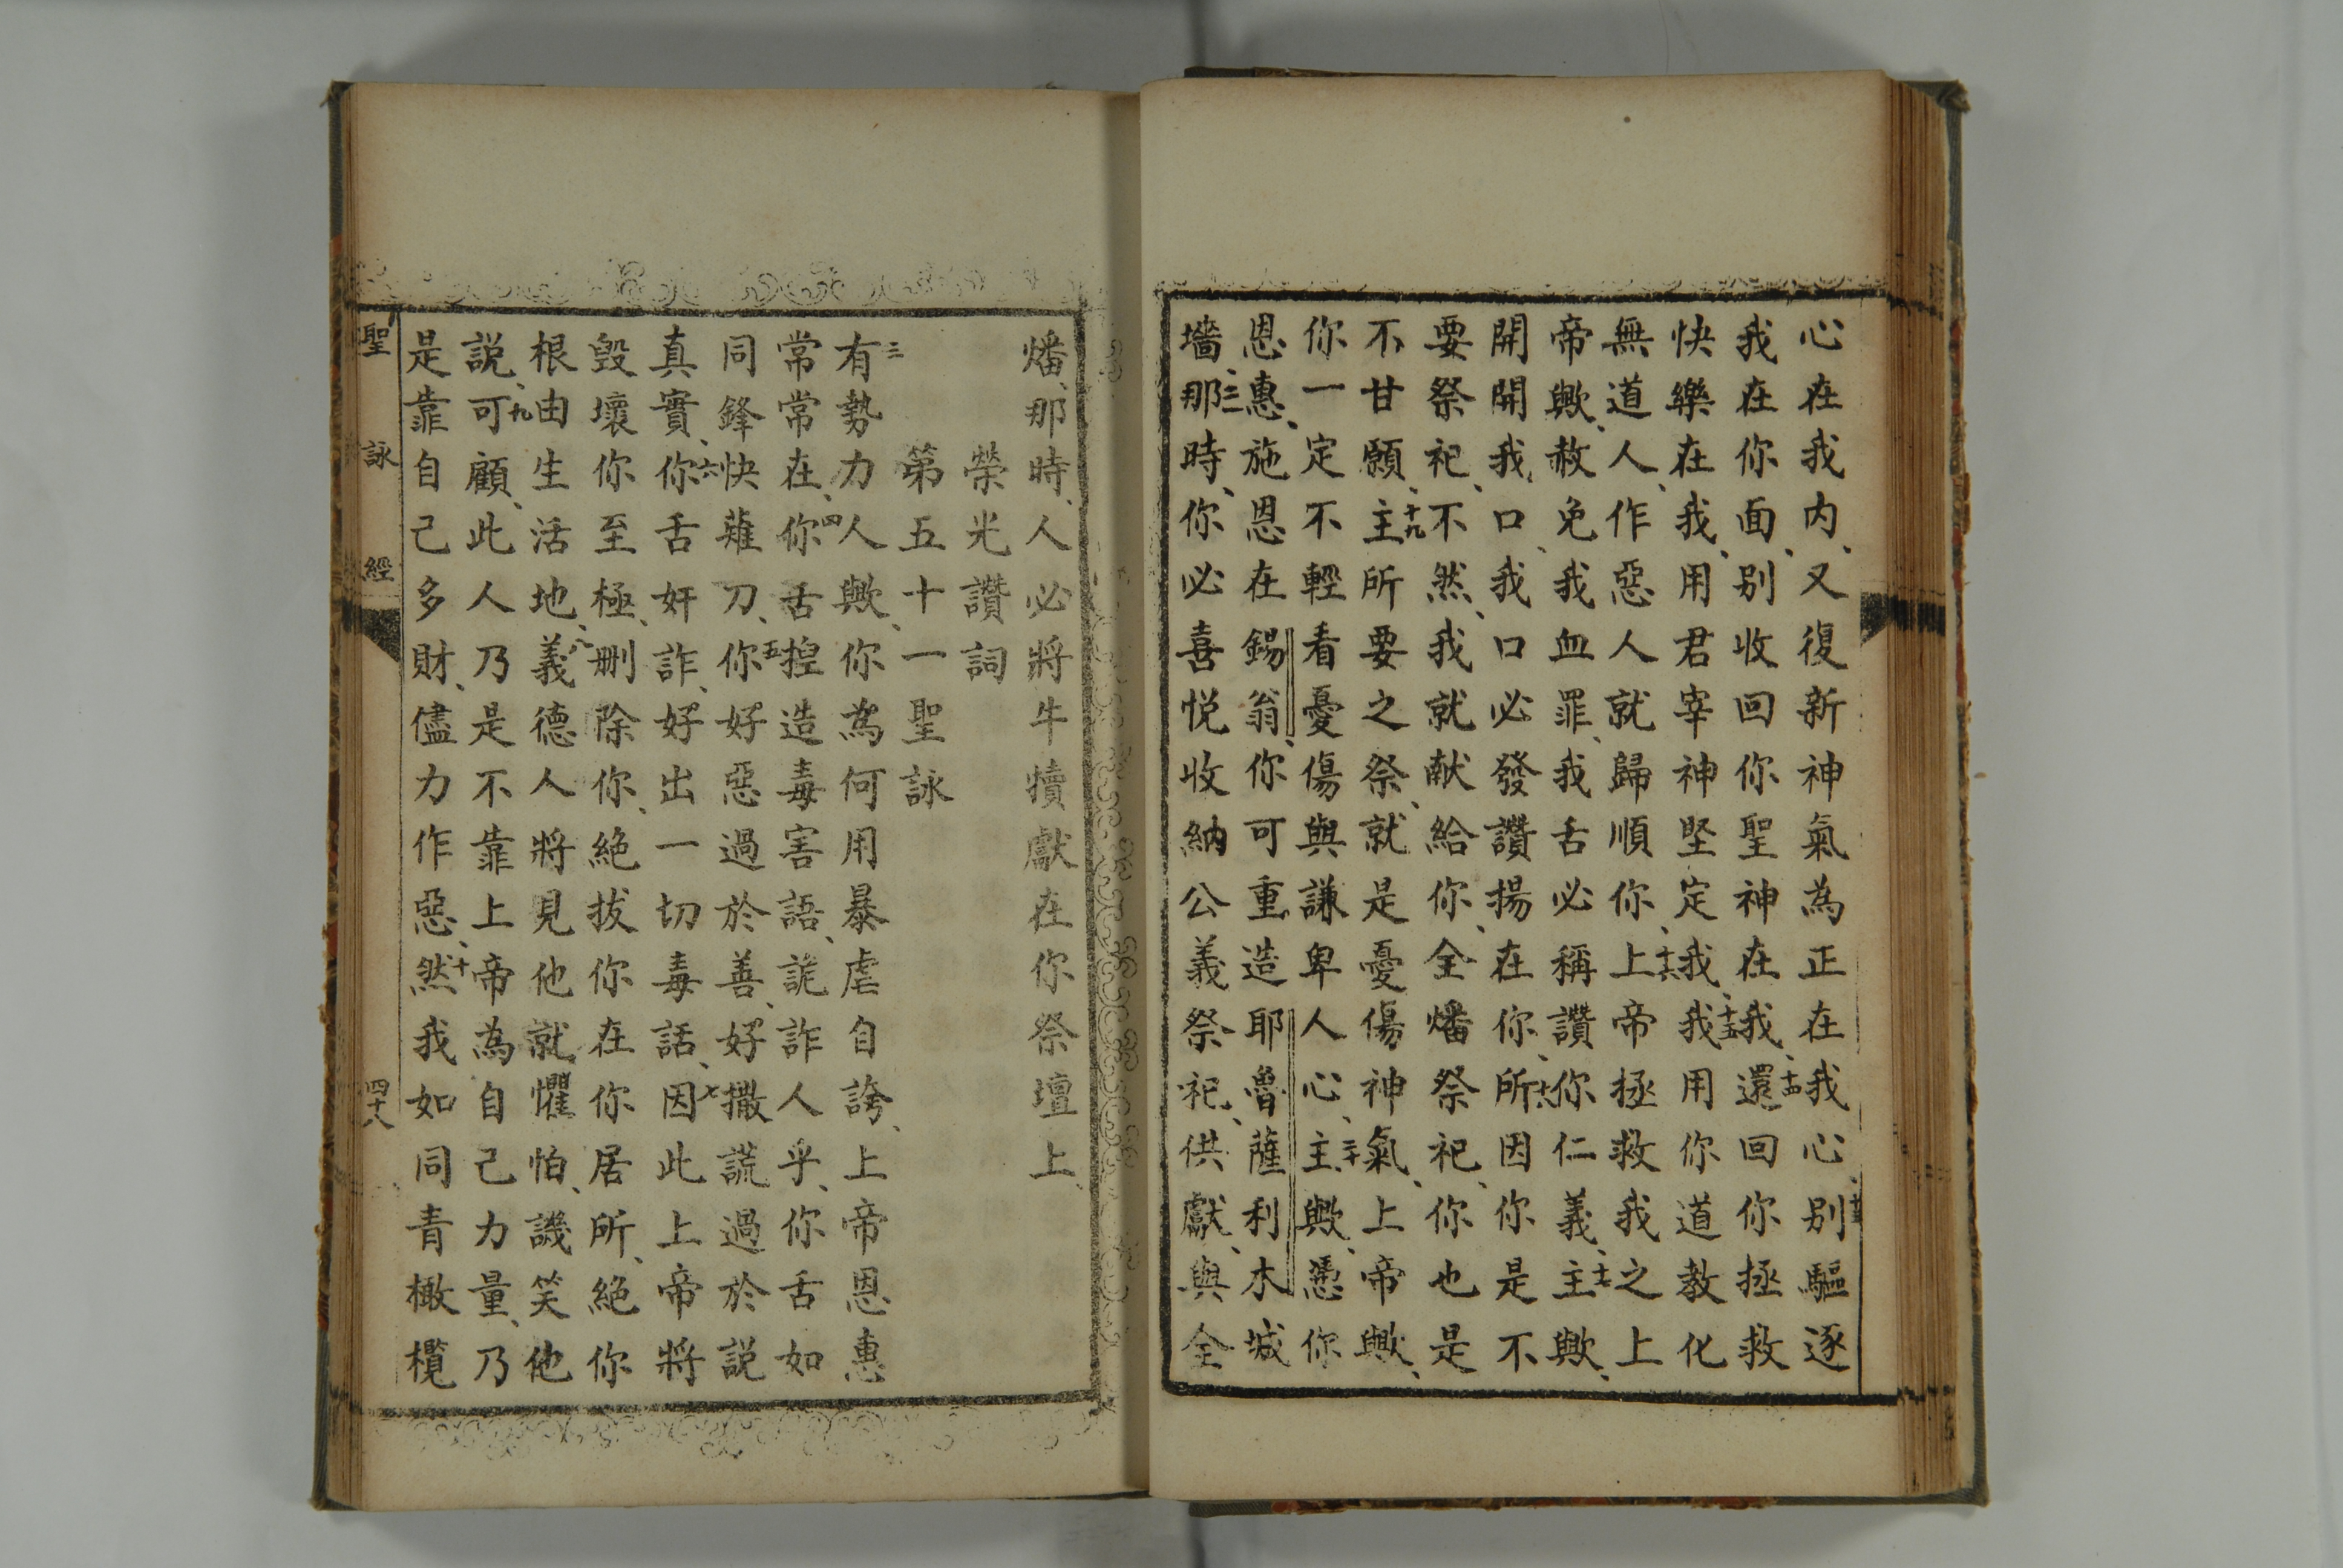 心在我内、又復新神氣為正在我心、十三别驅逐
我在你面、别收回你聖神在我、十四還回你拯救
快樂在我、用君宰神堅定我、十五我用你道教化
無道人、作惡人就歸順你、十六上帝拯救我之上
帝歟、赦免我血罪、我舌必稱讚你仁義、十七主歟、
開開我口、我口必發讚揚在你、十八所因你是不
要祭祀、不然、我就献給你、全燔祭祀、你也是
不甘願、十九主所要之祭、就是憂傷神氣、上帝歟、
你一定不輕看憂傷與謙卑人心、二十主歟、憑你
恩惠、施恩在錫翁、你可重造耶魯薩利木城
墻、二一那時、你必喜悦收納公義祭祀、供獻、與全
燔、那時、人必將牛犢獻在你祭壇上、
榮光讚詞
第五十一聖詠
三有勢力人歟、你為何用暴虐自誇、上帝恩惠
常常在、四你舌揑造毒害語、詭詐人乎、你舌如
同鋒快薙刀、五你好惡過於善、好撒謊過於説
真實、六你舌奸詐、好出一切毒話、七因此上帝將
毁壞你至極、删除你、絶拔你在你居所、絶你
根由生活地、八義德人將見他就懼怕、譏笑他
説、九可顧、此人乃是不靠上帝為自己力量、乃
是靠自己多財、儘力作惡、十然我如同青橄欖
聖詠經
四十八